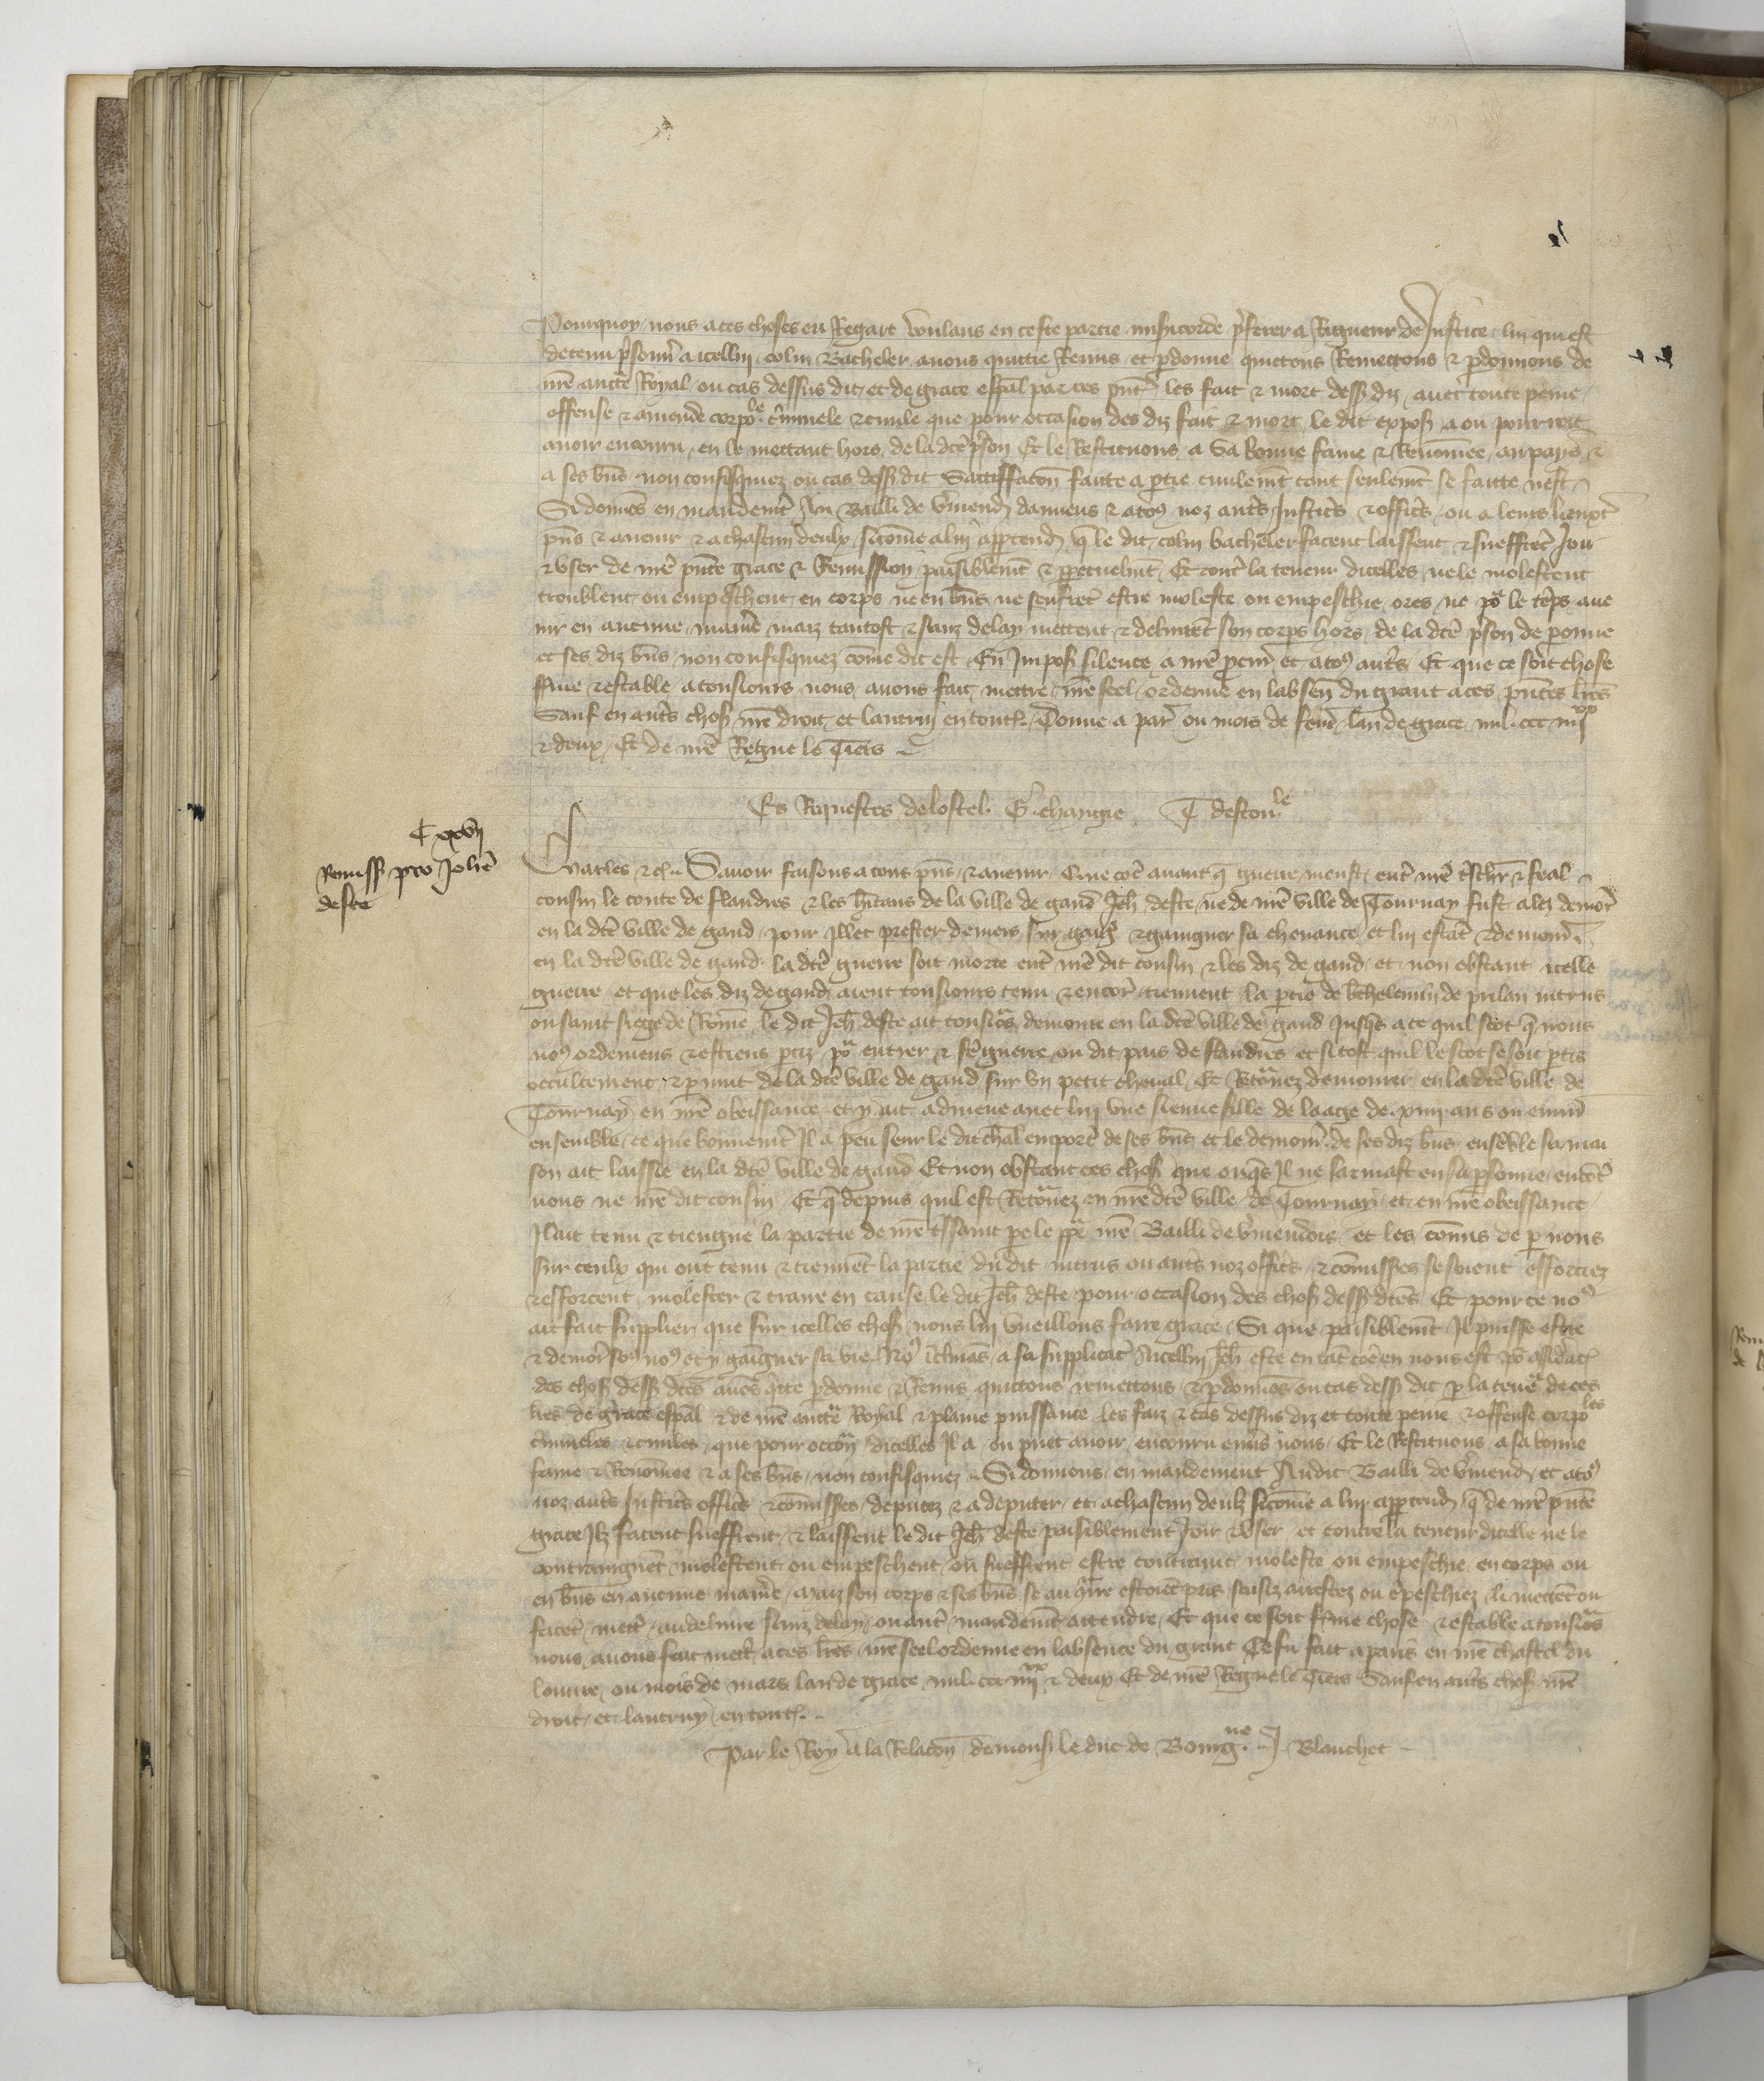 Pourquoy nous a ces choses eu Regart voulans en ceste partie mis̃icorde p̃ferer a Rigueur de Justice lui qui est
detenu p̃sonñ a icellui colin Bacheler avons quittie Remis et p̱donne quictons Remettons & p̱donnons de
nr̃e auct̃e Royal ou cas dessus dit et de grace esp̃al par ces p̃nt̃ les fait & mort dess̃ diz avec toute peine
offense & amende corporͤle c̃minele & civile que pour occasion des diz fait & mort le dit expoß a ou pourroit
avoir encouru en le mettant hors de la dc̃e p̃son Et le Restituons a sa bonne fame & Renom̃ee au pays &
a ses bñs non confisquiez ou cas dess̃ dit Satisffacõn faicte a p̱tie civilem̃t tant seulem̃t se faicte nest
Si donnõs en mandem̃t Au Bailli de v̾mend̾ damiens & a to⁹ noz aut̾s Justic̾s & offic̾s ou a leurs lieuxt̾
p̃ns & avenir & a chascun deulx sicom̃e a lui app̱tend̾ q̃ le dit colin bacheler facent laissent & sueffrẽt Joir
& user de nr̃e p̃nte grace & Remission paisiblem̃t & p̱petuelm̃t Et cont̾ la teneur dicelles ne le molestent
troublent ou empeschent en corps ne en bñs ne seuffrẽt estre moleste ou empeschie ores ne po͛ le tẽps ave
nir en aucune manie̾ maiz tantost & sanz delay mettent & delivrẽt son corps hors de la dc̃e p̃son de peronne
et ses diz bñs non confisquiez cõme dit est En Imposã silence a nr̃e p̱cur̾ et a to⁹ aut̾s Et que ce soit chose
ferme & estable a tousiours nous avons fait mettre nr̃e seel ordenne en labseñ du grant a ces p̃ntes lr̃es
Sauf en aut̾s choß nr̃e droit et lautruj en tout̾ Donne a par̾ ou mois de fevr̾ lan de grace mil ccc iiijˣˣ
& deux Et de nr̃e Regne le Tiers
Es Requestes de lostel G. changie T destouͬˡᵉ
C xxvij
Remiss̃ pro Joh̃e
deste
Charles &c̃ Savoir faisons a tous p̃ns & avenir Que cõe avant q̃ guerre meust ent̾ nr̃e t̾schr̃ & feal
cousin le conte de flandres & les h̃itans de la ville de gand Jeh̃ deste ne de nr̃e ville de Tournay fust alez demor̾
en la dc̃e ville de gand pour Illec prester deniers sur gaig̾ & gaaigner sa chevance et lui estãt & demour̾
en la dc̃e ville de gand la dc̃e guerre soit morte ent̾ nr̃e dit cousin & les diz de gand et non obstant icelle
guerre et que les diz de gand aient tousiours tenu & encor̾ tiennent la p̱tie de b̾thelemin de prilan intrus
ou saint siege de Rome le dit Jeh̃ deste ait tousio͛s demoure en la dc̃e ville de gand Jusq̃s a ce quil scot q̃ nous
no⁹ ordeniens & estiens p̱tiz po͛ entrer & fe̾ guerre ou dit pais de flandres et si tost quil le scot se soit p̱tis
occultement & p̱ nuit de la dc̃e ville de gand sur un petit cheval Et Reto͛nez demourer en la dc̃e ville de
Tournay en nr̃e obeissance et y ait admene avec lui une sienne fille de laage de xiiij ans ou environ
ensemble ce que bonnem̃t Il a peu seur le dit ch̃al emport̾ de ses bñs et le demor̾ de ses diz bñs ensẽble sa mai
son ait laissie en la dc̃e ville de gand Et non obstant ces choß que onq̃s Il ne sarmast en sa p̱sonne encot̾
nous ne nr̃e dit cousin Et q̃ depuis quil est Reto͛nez en nr̃e dc̃e ville de Tournay et en nr̃e obeissance
Il ait tenu & tiengne la partie de nr̃e t̾ssaint pe̾ le pp̃e nr̃e Bailli de v̾mendois et les cõmis de p̱ nous
sur ceulx qui ont tenu & tiennẽt la partie du dit intrus ou aut̾s noz offic̾s & cõmiss̃es se soient efforciez
& efforcent molester & traire en cause le dit Jeh̃ deste pour occasion des choß dess̃ dc̃es Et pour ce no⁹
ait fait supplier que sur icelles choß nous lui vueillons faire grace Si que paisiblem̃t Il puisse estre
& demor̾ so⁹ no⁹ et y gaaigner sa vie No⁹ Incl̃inãs a sa supplicac̾ A icellui Jeh̃ este en tãt cõe en nous est
des choß dess̃ dc̃es avõs q̃tte p̱donne & Remis quictons remettons & p̱donnõs ou cas dess̃ dit p̱ la ten͛ de ces
lr̃es de grace esp̃al & de nr̃e auct̃e Royal & plaine puissance les faiz & cas dessus diz et toute peine & offense corpoˡᵉˢ
c̾mineles & civiles que pour occo͛n dicelles Il a ou puet avoir encouru env̾s nous Et le Restituons a sa bonne
fame & Renom̃ee & a ses bñs non confisquiez Si donnons en mandement Au dit Bailli de v̾mend̾ et a to⁹
noz aut̾s Justic̾s offic̾s & cõmiss̃es deputez & a deputer et a chascun deulz sicom̃e a lui app̱tend̾ q̃ de nr̃e p̃nte
grace Ilz facent sueffrent & laissent le dit Jeh̃ deste paisiblement Joir & user et contre la teneur dicelle ne le
contraignẽt molestent ou empeschent ou sueffrent estre contraint moleste ou empeschie en corps ou
en bñs en aucune manie̾ maiz son corps & ses bñs se au cont̾re estoiẽt pris saisiz arrestez ou ẽpeschiez li mettẽt ou
facẽt mett̾ au delivre sanz delay ou aut̾ mandem̃t attendre Et que ce soit ferme chose & estable a tousio͛s
nous avons fait mett̾ a ces lr̃es nr̃e seel ordenne en labsence du grant Ce fu fait a paris en nr̃e chastel du
louvre ou mois de mars lan de grace mil ccc iiijˣˣ & deux Et de nr̃e Regne le Tiers Sauf en aut̾s choß nr̃e
droit et lautruy en tout̾
Par le Roy a la Relacõn de mons̾ le duc de Bourg.ⁿᵉ J Blanchet